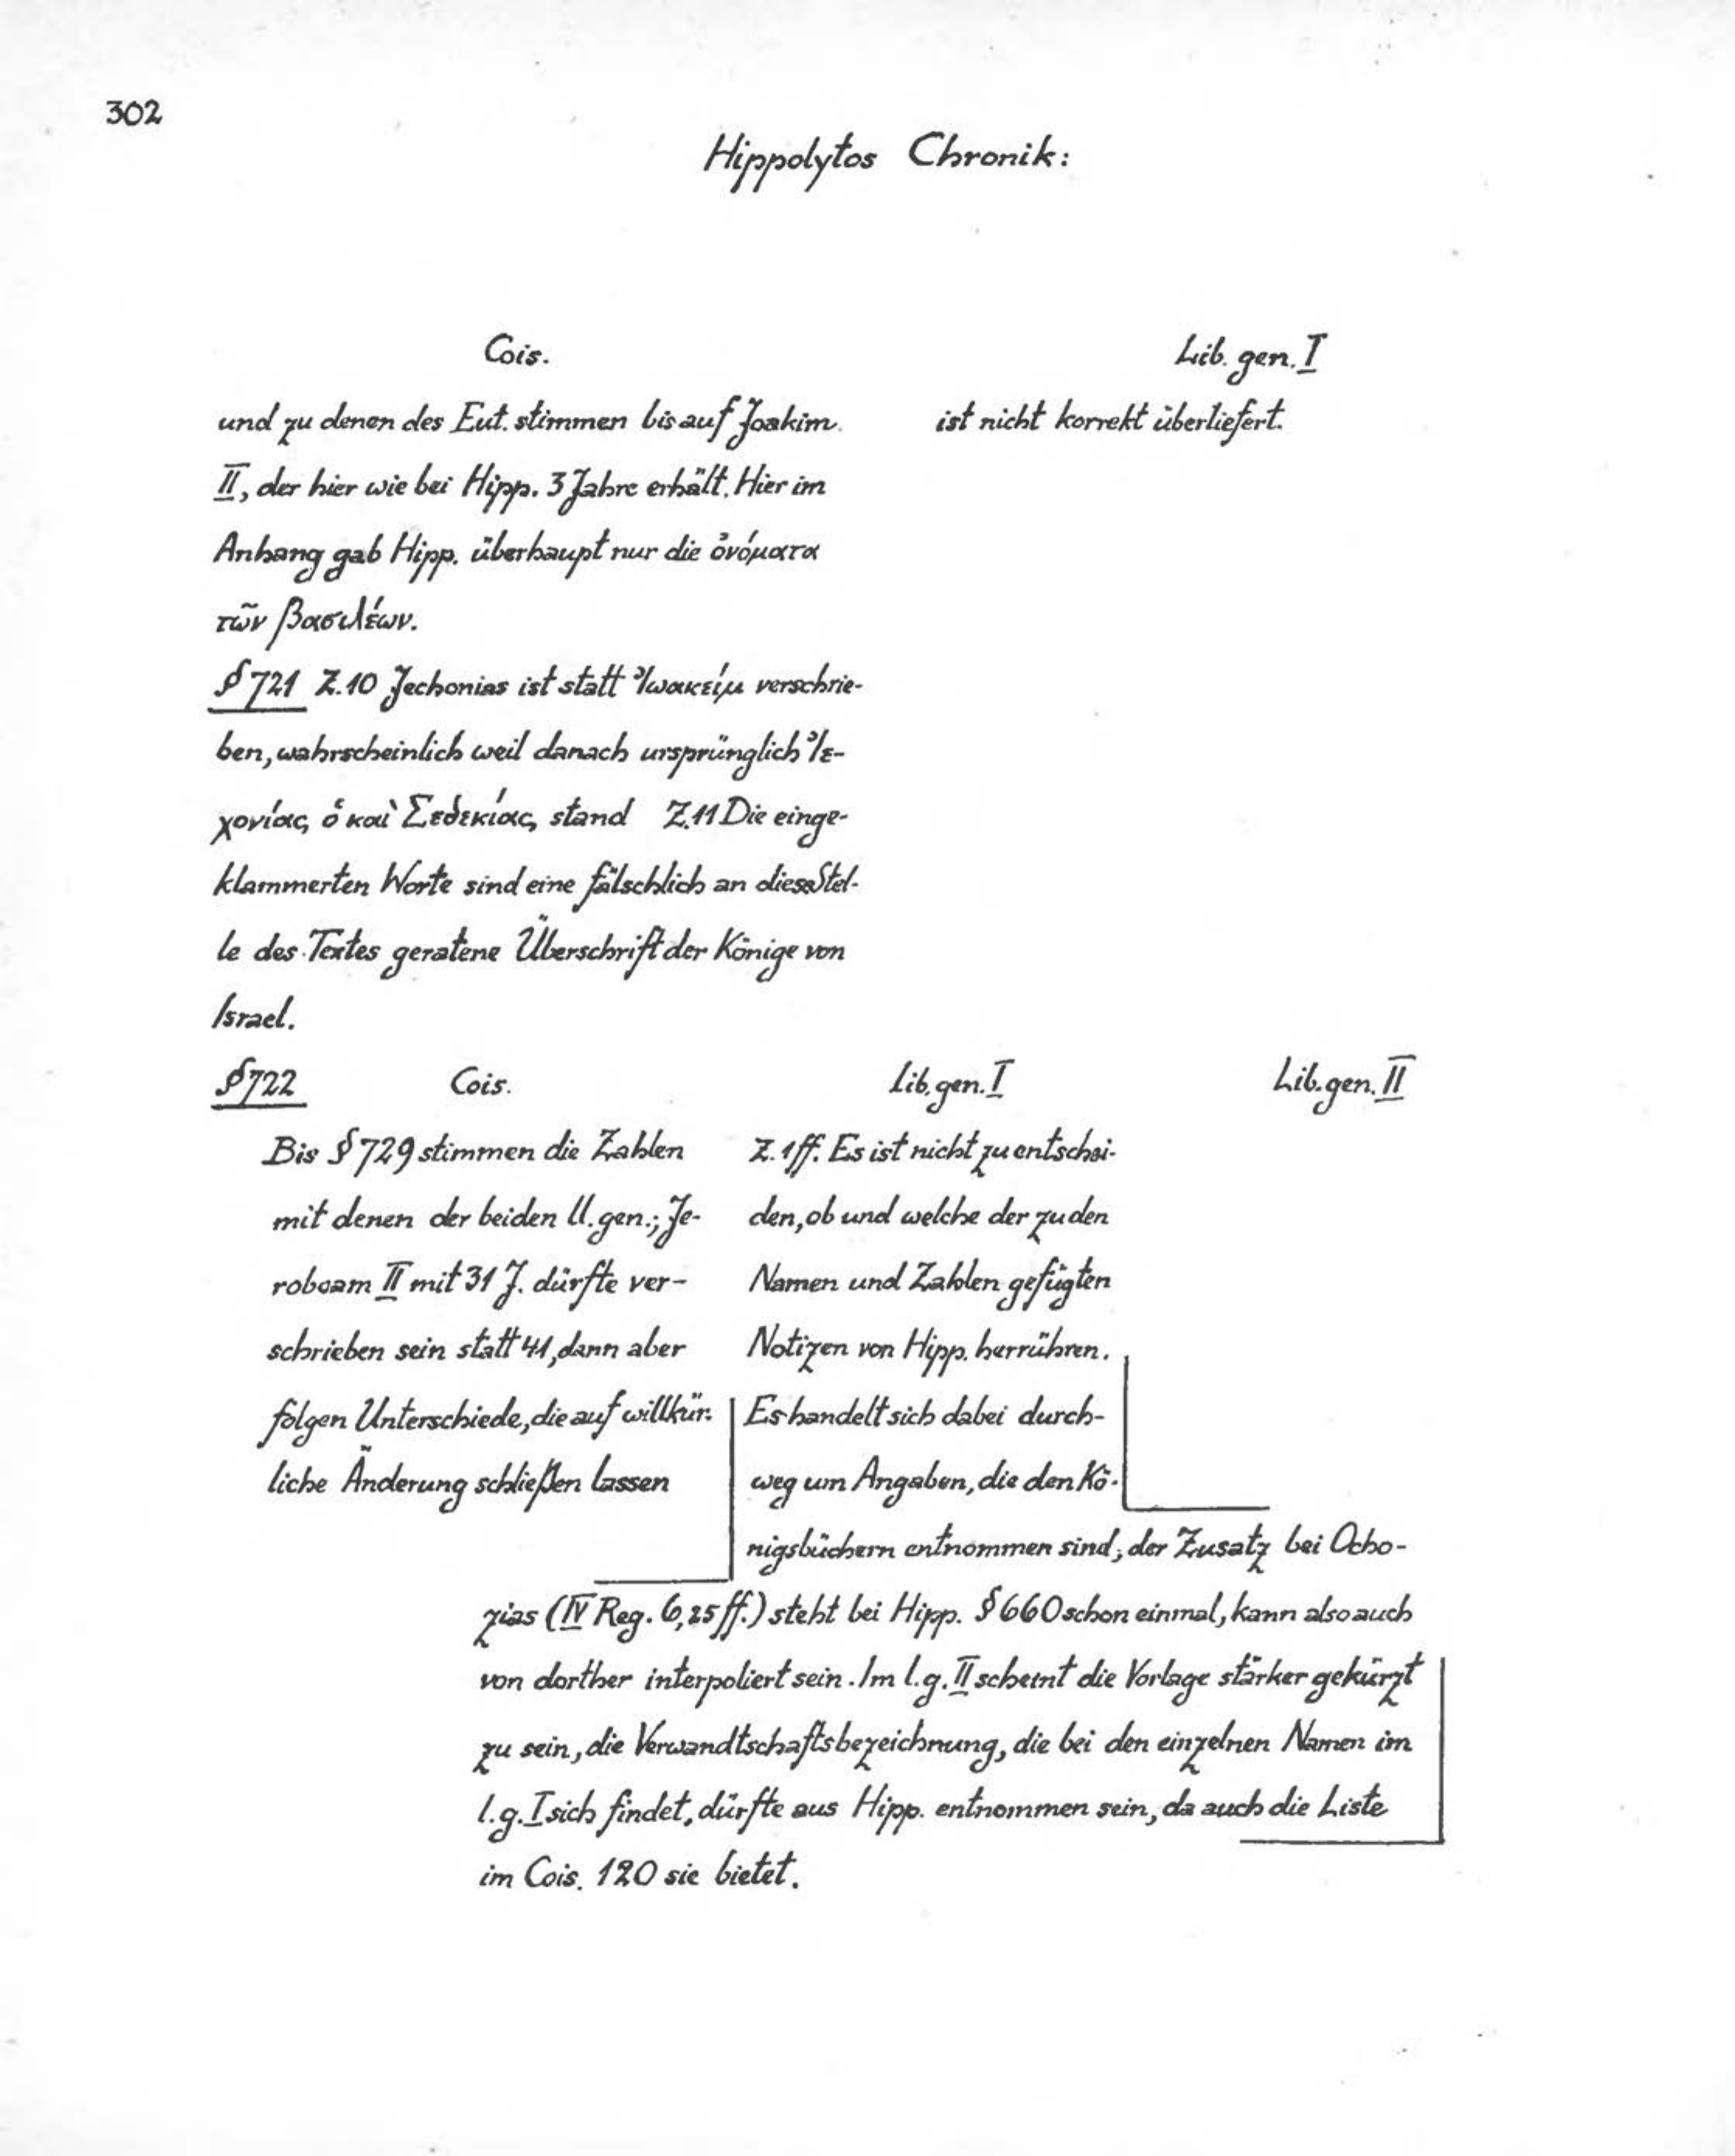 302
Hippolytos Chronik:
Cois.
und zu denen des Eut. stimmen bis auf Joakim.
II, der hier wie bei Hipp. 3 Jahre erhält. Hier im
Anhang gab Hipp. überhaupt nur die ὀνόματα
τῶν βασιλέων.
§ 721 Z. 10 Jechonias ist statt Ἰωακείμ verschrie-
ben, wahrscheinlich weil danach ursprünglich Ἰε-
χονίας ὁ καὶ Σεδεκίας stand Z. 11 Die einge-
klammerten Worte sind eine fälschlich an diese Stel-
le des Textes geratene Überschrift der Könige von
Israel.
Lib. gen. I
ist nicht korrekt überliefert.
§ 722
Cois.
Bis § 729 stimmen die Zahlen
mit denen der beiden ll. gen.; Je-
roboam II mit 31 J. dürfte ver-
schrieben sein statt 41, dann aber
folgen Unterschiede, die auf willkür-
liche Änderung schließen lassen
Lib. gen. I
Z. 1ff. Es ist nicht zu entschei-
den, ob und welche der zu den
Namen und Zahlen gefügten
Notizen von Hipp. herrühren.
Es handelt sich dabei durch-
weg um Angaben, die den Kö-
nigsbüchern entnommen sind; der Zusatz bei Ocho-
zias (IV Reg. 6, 25 ff.) steht bei Hipp. § 660 schon einmal, kann also auch
von dorther interpoliert sein. Im l. g. II scheint die Vorlage stärker gekürzt
zu sein, die Verwandtschaftsbezeichnung, die bei den einzelnen Namen im
l. g. I sich findet, dürfte aus Hipp. entnommen sein, da auch die Liste
im Cois. 120 sie bietet.
Lib. gen. II